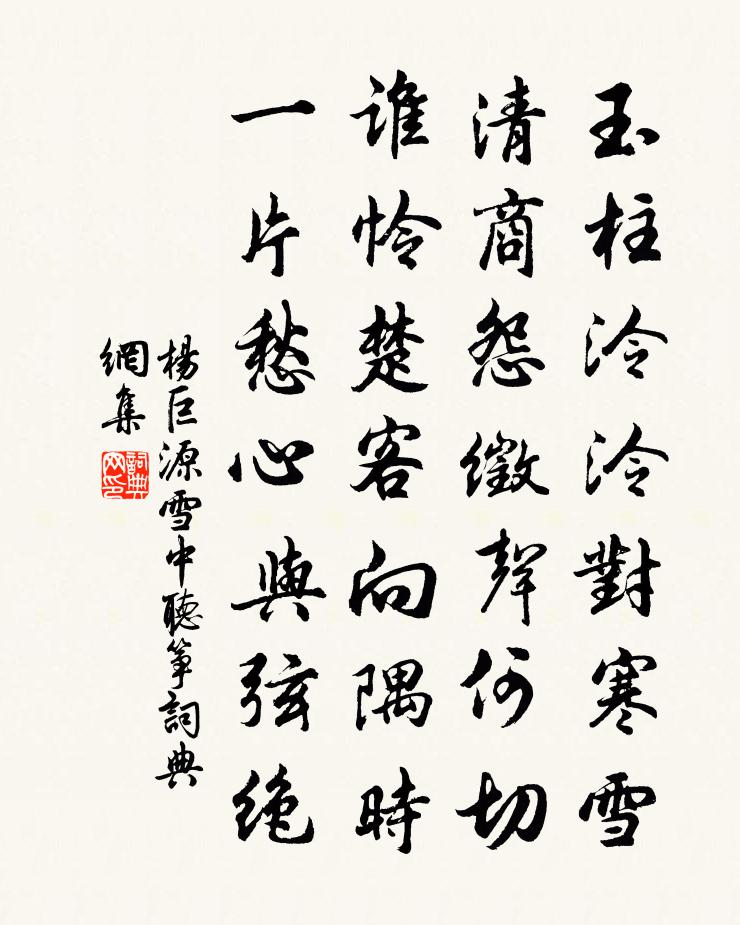 玉柱泠泠對寒雪
清商怨徵聲何切
誰怜楚客向隅時
一片愁心與弦绝
楊巨源雪中聽箏詞典
網集
詞典
网印